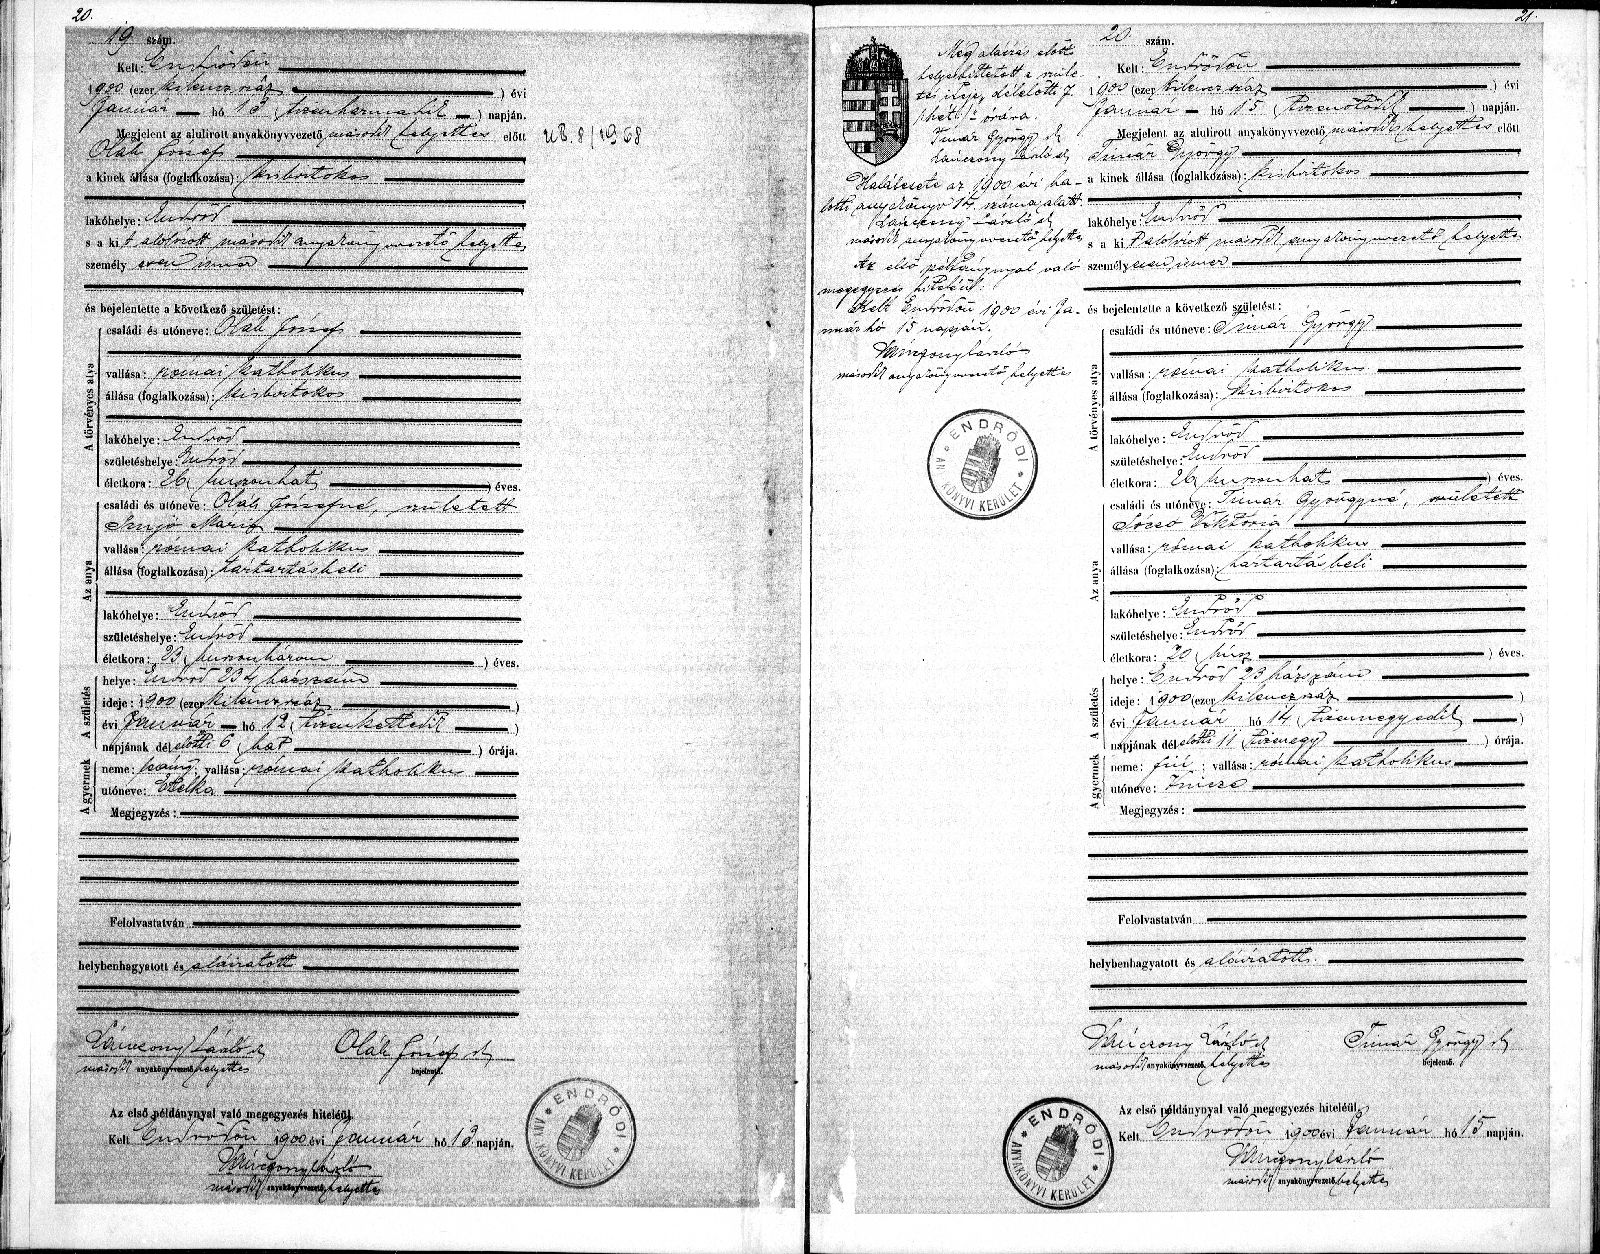 20.
19 szám.
Kelt: Endrődön
1900 (ezer kilenczszáz) évi
Január hó 13 (tizenharmadik) napján.
Megjelent az alulirott anyakönyvvezető, másodk helyettes előtt
Oláh József
a kinek állása (foglalkozása): kisbirtokos
lakóhelye: Endrőd
s a kit alólirott másodk anyakönyvvezető helyettes
személyesen ismer
és bejelentette a következő születést:
A törvényes atya
családi és utóneve: Oláh József
vallása: római katholikus
állása (foglalkozása): kisbirtokos
lakóhelye: Endrőd
születéshelye: Endrőd
életkora: 26 (huszonhat) éves.
Az anya
családi és utóneve: Oláh Józsefné, született
Szujó Mária
vallása: római katholikus
állása (foglalkozása): háztartásbeli
lakóhelye: Endrőd
születéshelye: Endrőd
életkora: 23 (huszonhárom) éves.
A születés
helye: Endrőd 234 házszám
ideje: 1900 (ezer kilenczszáz)
évi Január hó 12 (tizenkettedik)
napjának délelőtti 6 (hat) órája.
A gyermek
neme: leány; vallása: római katholikus
utóneve: Etelka
Megjegyzés:
Felolvastatván
helybenhagyatott és aláiratott
Lánczony László sk
másodk anyakönyvvezető helyettes
Oláh József sk
bejelentő.
Az első példánynyal való megegyezés hiteléül.
Kelt Endrődön 1900 évi Január hó 13 napján.
Lánczony László
másodk anyakönyvvezető helyettes
UB. 8/1968
ENDRŐDI
ANYAKÖNYVI KERÜLET
21.
Még aláirás előtt
helyesbittetett a szüle-
tés ideje, délelőtt 7
(hét) órára.
Timár György sk
Lánczony László sk
Halálesete az 1900 évi ha-
lotti anyakönyv 14 száma alatt.
Lánczony László sk
másodk anyakönyvvezető helyettes
Az első példánynyal való
megegyezés hiteléül.
Kelt Endrődön 1900 évi Ja-
nuár hó 15 napján.
Lánczony László
másodk anyakönyvvezető helyettes
ENDRŐDI
ANYAKÖNYVI KERÜLET
20 szám.
Kelt: Endrődön
1900 (ezer kilenczszáz) évi
Január hó 15 (tizenötödik) napján.
Megjelent az alulirott anyakönyvvezető, másodk helyettes előtt
Timár György
a kinek állása (foglalkozása): kisbirtokos
lakóhelye: Endrőd
s a kit alólirott másodk anyakönyvvezető helyettes
személyesen ismer
és bejelentette a következő születést:
A törvényes atya
családi és utóneve: Timár György
vallása: római katholikus
állása (foglalkozása): kisbirtokos
lakóhelye: Endrőd
születéshelye: Endrőd
életkora: 26 (huszonhat) éves.
Az anya
családi és utóneve: Timár Györgyné, született
Viktória
vallása: római katholikus
állása (foglalkozása): háztartásbeli
lakóhelye: Endrőd
születéshelye: Endrőd
életkora: 20 (húsz) éves.
A születés
helye: Endrőd 23 házszám
ideje: 1900 (ezer kilenczszáz)
évi Január hó 14 (tizennegyedik)
napjának délelőtti 11 (tizenegy) órája.
A gyermek
neme: fiú; vallása: római katholikus
utóneve: Vincze
Megjegyzés:
Felolvastatván
helybenhagyatott és aláiratott.
Lánczony László sk
másodk anyakönyvvezető helyettes
Timár György sk
bejelentő.
Az első példánynyal való megegyezés hiteléül
Kelt Endrődön 1900 évi Január hó 15 napján.
Lánczony László
másodk anyakönyvvezető helyettes
ENDRŐDI
ANYAKÖNYVI KERÜLET